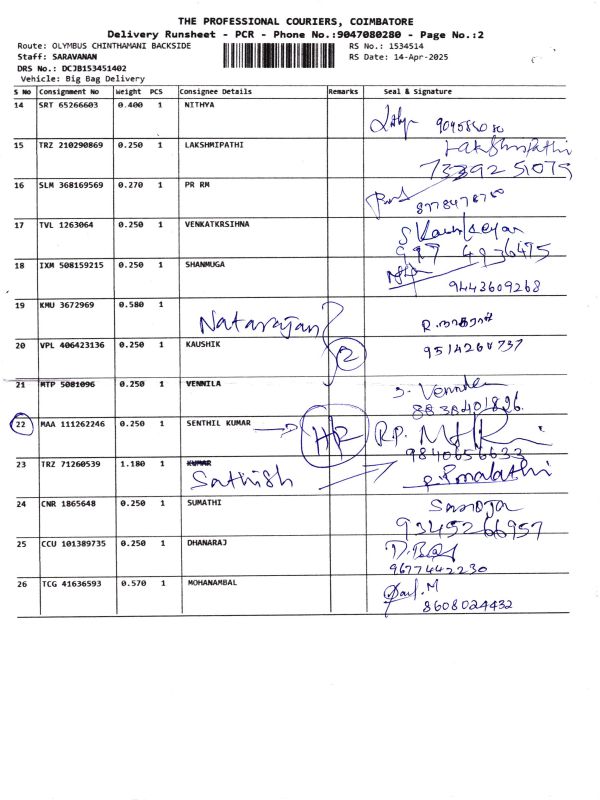 THE PROFESSIONAL COURIERS, COIMBATORE
Delivery Runsheet - PCR - Phone No.:9047080280 - Page No.:2
Route: OLYMBUS CHINTHAMANI BACKSIDE RS No.: 1534514
Staff: SARAVANAN RS Date: 14-Apr-2025
DRS No.: DCJB153451402
Vehicle: Big Bag Delivery
S No Consignment No Weight PCS Consignee Details Remarks Seal & Signature
14 SRT 65266603 0.400 1 NITHYA
15 TRZ 210290869 0.250 1 LAKSHMIPATHI Lakshmipathi
73392 51079
16 SLM 368169569 0.270 1 PR RM
8778478780
17 TVL 1263064 0.250 1 VENKATKRSIHNA
997 4936475
18 IXM 508159215 0.250 1 SHANMUGA
9443609268
19 KMU 3672969 0.580 1
Natarajan R. நாகராஜ்
20 VPL 406423136 0.250 1 KAUSHIK 2 9514260737
21 MTP 5081096 0.250 1 VENNILA S. Vennila
8838401896
22 MAA 111262246 0.250 1 SENTHIL KUMAR HR R.P.
9840656633
23 TRZ 71260539 1.180 1 KUMAR
Sathish P. Malathi
24 CNR 1865648 0.250 1 SUMATHI Saroja
9345266957
25 CCU 101389735 0.250 1 DHANARAJ
9677442230
26 TCG 41636593 0.570 1 MOHANAMBAL
8608024432